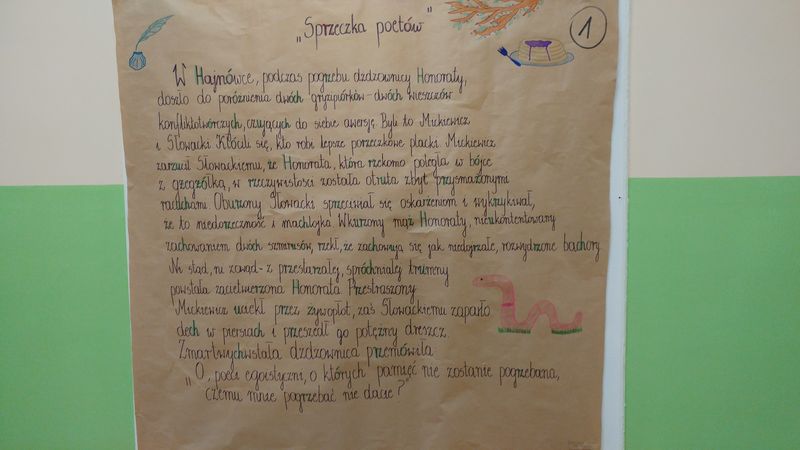 „Sprzeczka poetów"
1
W Hajnówce, podczas pogrzebu dżdżownicy Honoraty,
doszło do poróżnienia dwóch gryzipiórków-dwóch wieszczów
konfliktotwórczych, czujących do siebie awersję. Byli to Mickiewicz
i Słowacki. Kłócili się, kto robi lepsze porzeczkowe placki. Mickiewicz
zarzucił Słowackiemu, że Honorata, która rzekomo poległa w bójce
z gżegżółką, w rzeczywistości została otruta zbyt przysmażonymi
racuchami. Oburzony Słowacki sprzeciwiał się oskarżeniom i wykrzykiwał,
że to niedorzeczność i machlojka. Wkurzony mąż Honoraty, nieukontentowany
zachowaniem dwóch szmirusów, rzekł, że zachowują się jak niedojrzałe, rozwydrzone bachory.
Ni stąd, ni zowąd- z przestarzałej, spróchniałej trumny
powstała zacietrzewiona Honorata. Przestraszony
Mickiewicz uciekł przez żywopłot, zaś Słowackiemu zaparło
dech w piersiach i przeszedł go potężny dreszcz.
Zmartwychwstała dżdżownica przemówiła
„O, poeci egoistyczni, o których pamięć nie zostanie pogrzebana,
czemu mnie pogrzebać nie dacie?"